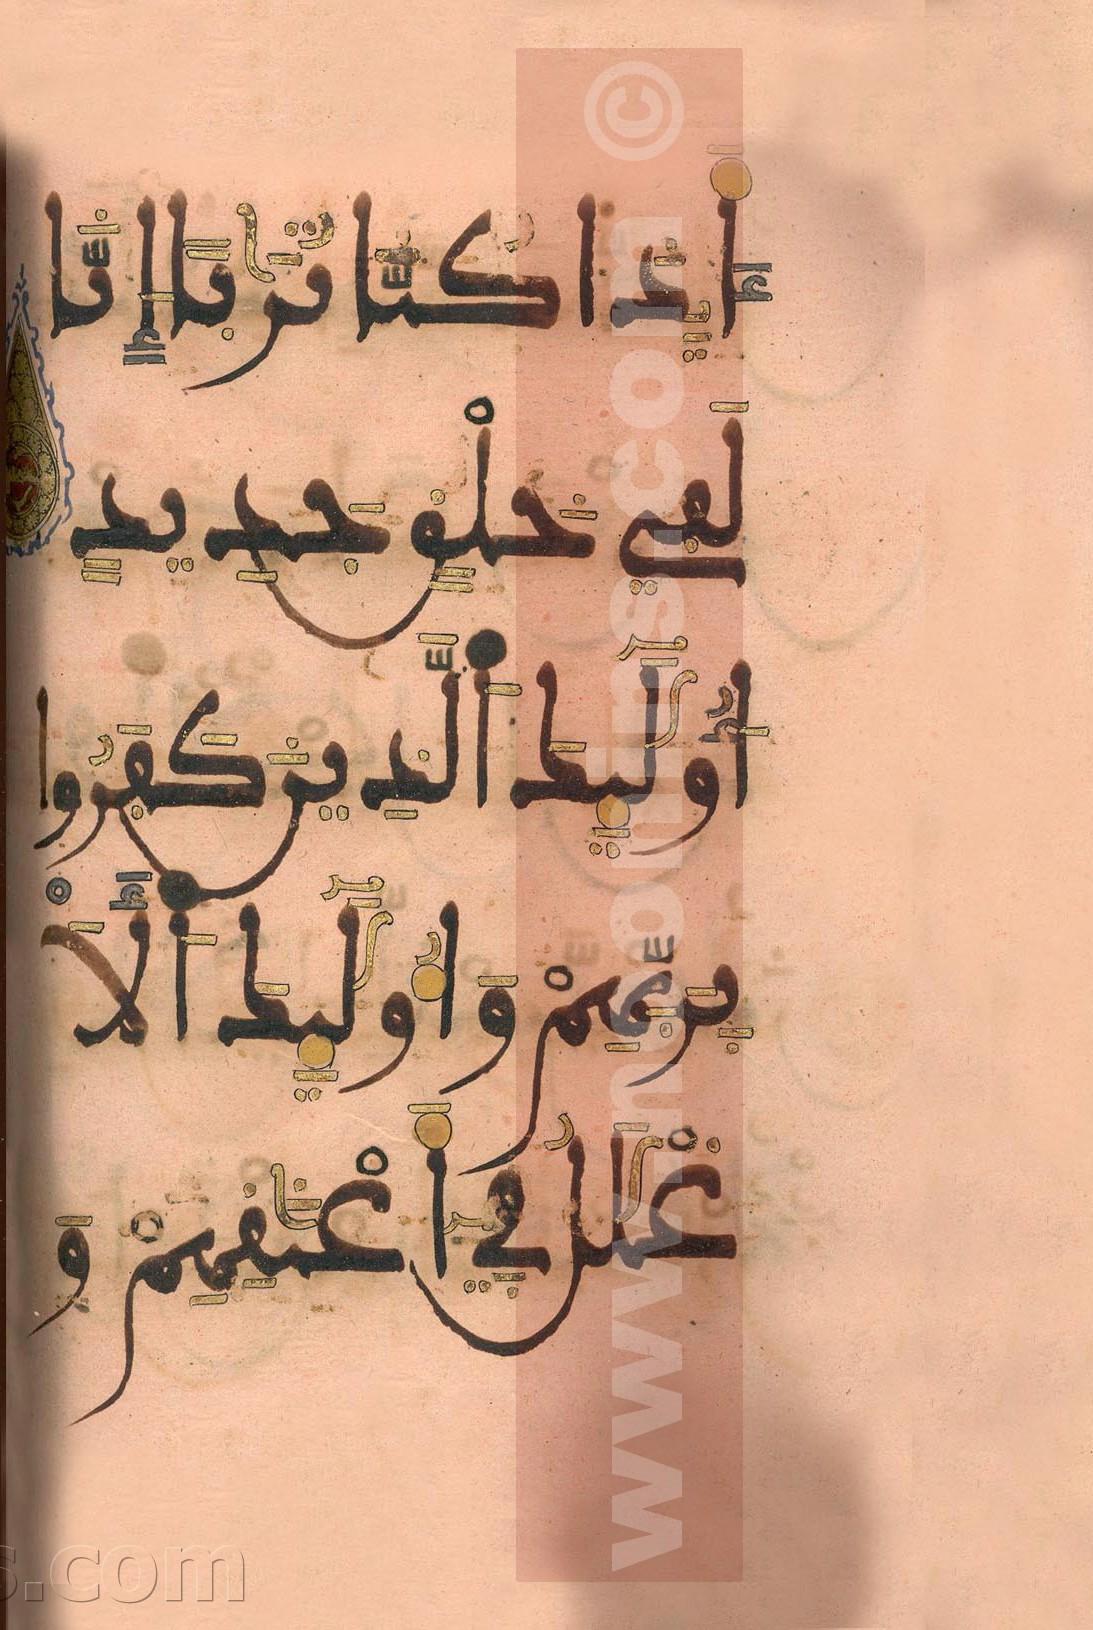 أَىِٕذَا كُنَّا تُرَٰبًا إِنَّا
لَفِي خَلْقٍ جَدِيدٍ
أُوْلَٰٓئِكَ ٱلَّذِينَ كَفَرُوا
بِرَبِّهِمْ وَأُوْلَٰٓئِكَ ٱلْأَ
غْلَٰلُ فِيٓ أَعْنَٰقِهِمْ وَ
s.com